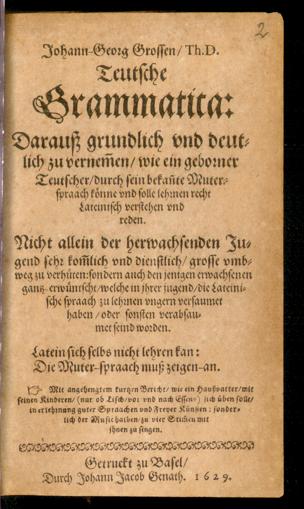 2
Johann-Georg Grossen/ Th.D.
Teutsche
Grammatica:
Darauß grundlich vnd deut-
lich zu vernem̃en/ wie ein geborner
Teutscher/ durch sein bekañte Muter-
spraach könne vnd solle lehrnen recht
Lateinisch verstehen vnd
reden.
Nicht allein der herwachsenden Ju-
gend sehr kom̃lich vnd dienstlich/ grosse vmb-
weg zu verhüten: sondern auch den jenigen erwachsenen
gantz erwüntscht/ welche in jhrer jugend/ die Lateini-
sche spraach zu lehrnen vngern versaumet
haben/ oder sonsten verabsau-
met seind worden.
Latein sich selbs nicht lehren kan:
Die Muter-spraach muß zeigen-an.
☞ Mit angehengtem kurtzen Bericht/ wie ein Haußvatter/ mit
seinen Kinderen/ (nur ob Tisch/ vor vnd nach Essen) sich üben solle/
in erlehrnung guter Spraachen vnd Freyer Künsten: sonder-
lich der Music halben/ zu vier Stim̃en mit
jhnen zu singen.
Getruckt zu Basel/
Durch Johann Jacob Genath. 1629.